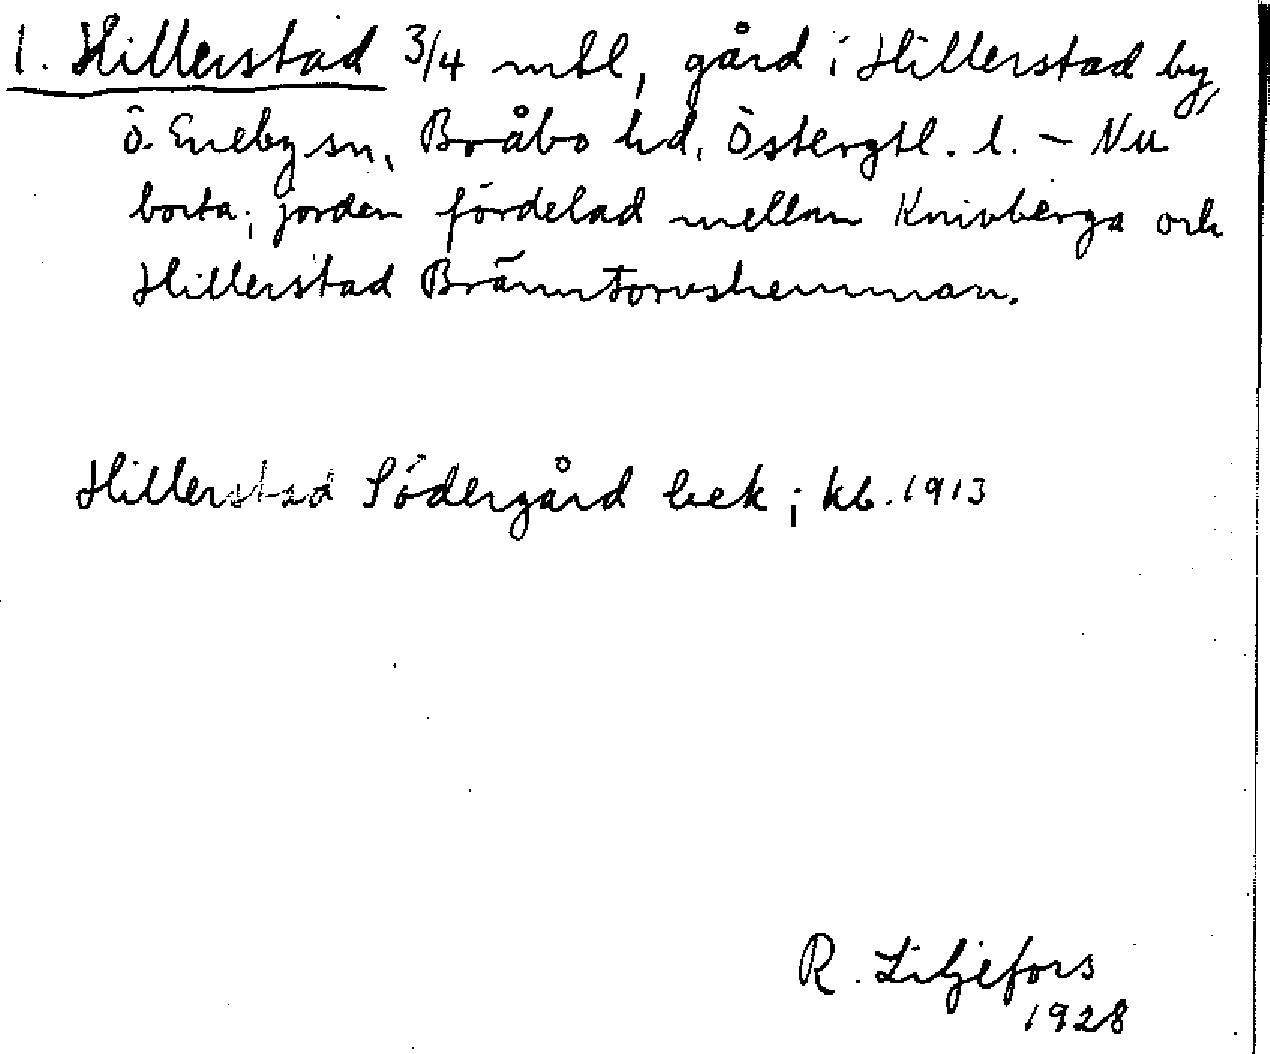 1. Hillerstad 3/4 mtl, gård i Hillerstad by,
Ö. Eneby sn, Bråbo hd, Östergtl. l. – Nu
borta; jorden fördelad mellan Knivberga och
Hillerstad Bränntorvshemman.
Hillerstad Södergård bek; kb. 1913
R. Liljefors
1928